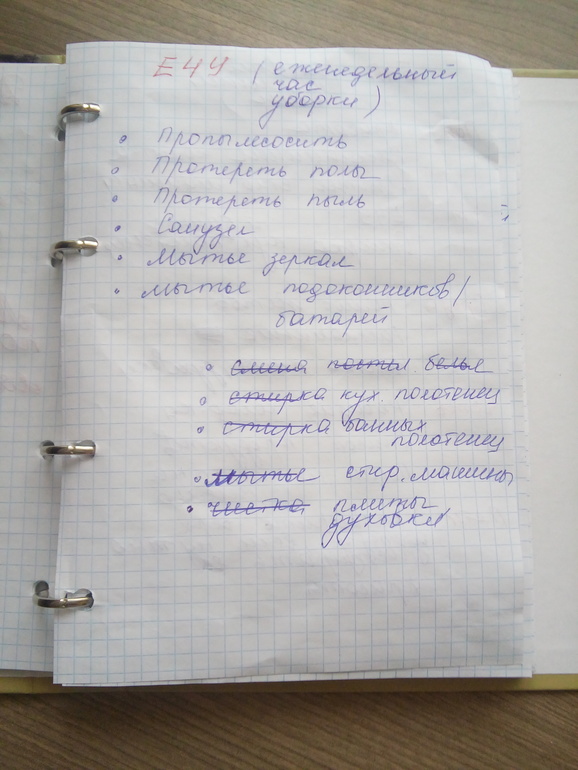 ЕЧУ (еженедельный
час
уборки)
• Пропылесосить
• Протереть полы
• Протереть пыль
• Санузел
• Мытье зеркал
• мытье подоконников/
батарей
• смена постел. белья
• стирка кух. полотенец
• стирка банных
полотенец
• мытье стир. машины
• чистка плиты
духовки